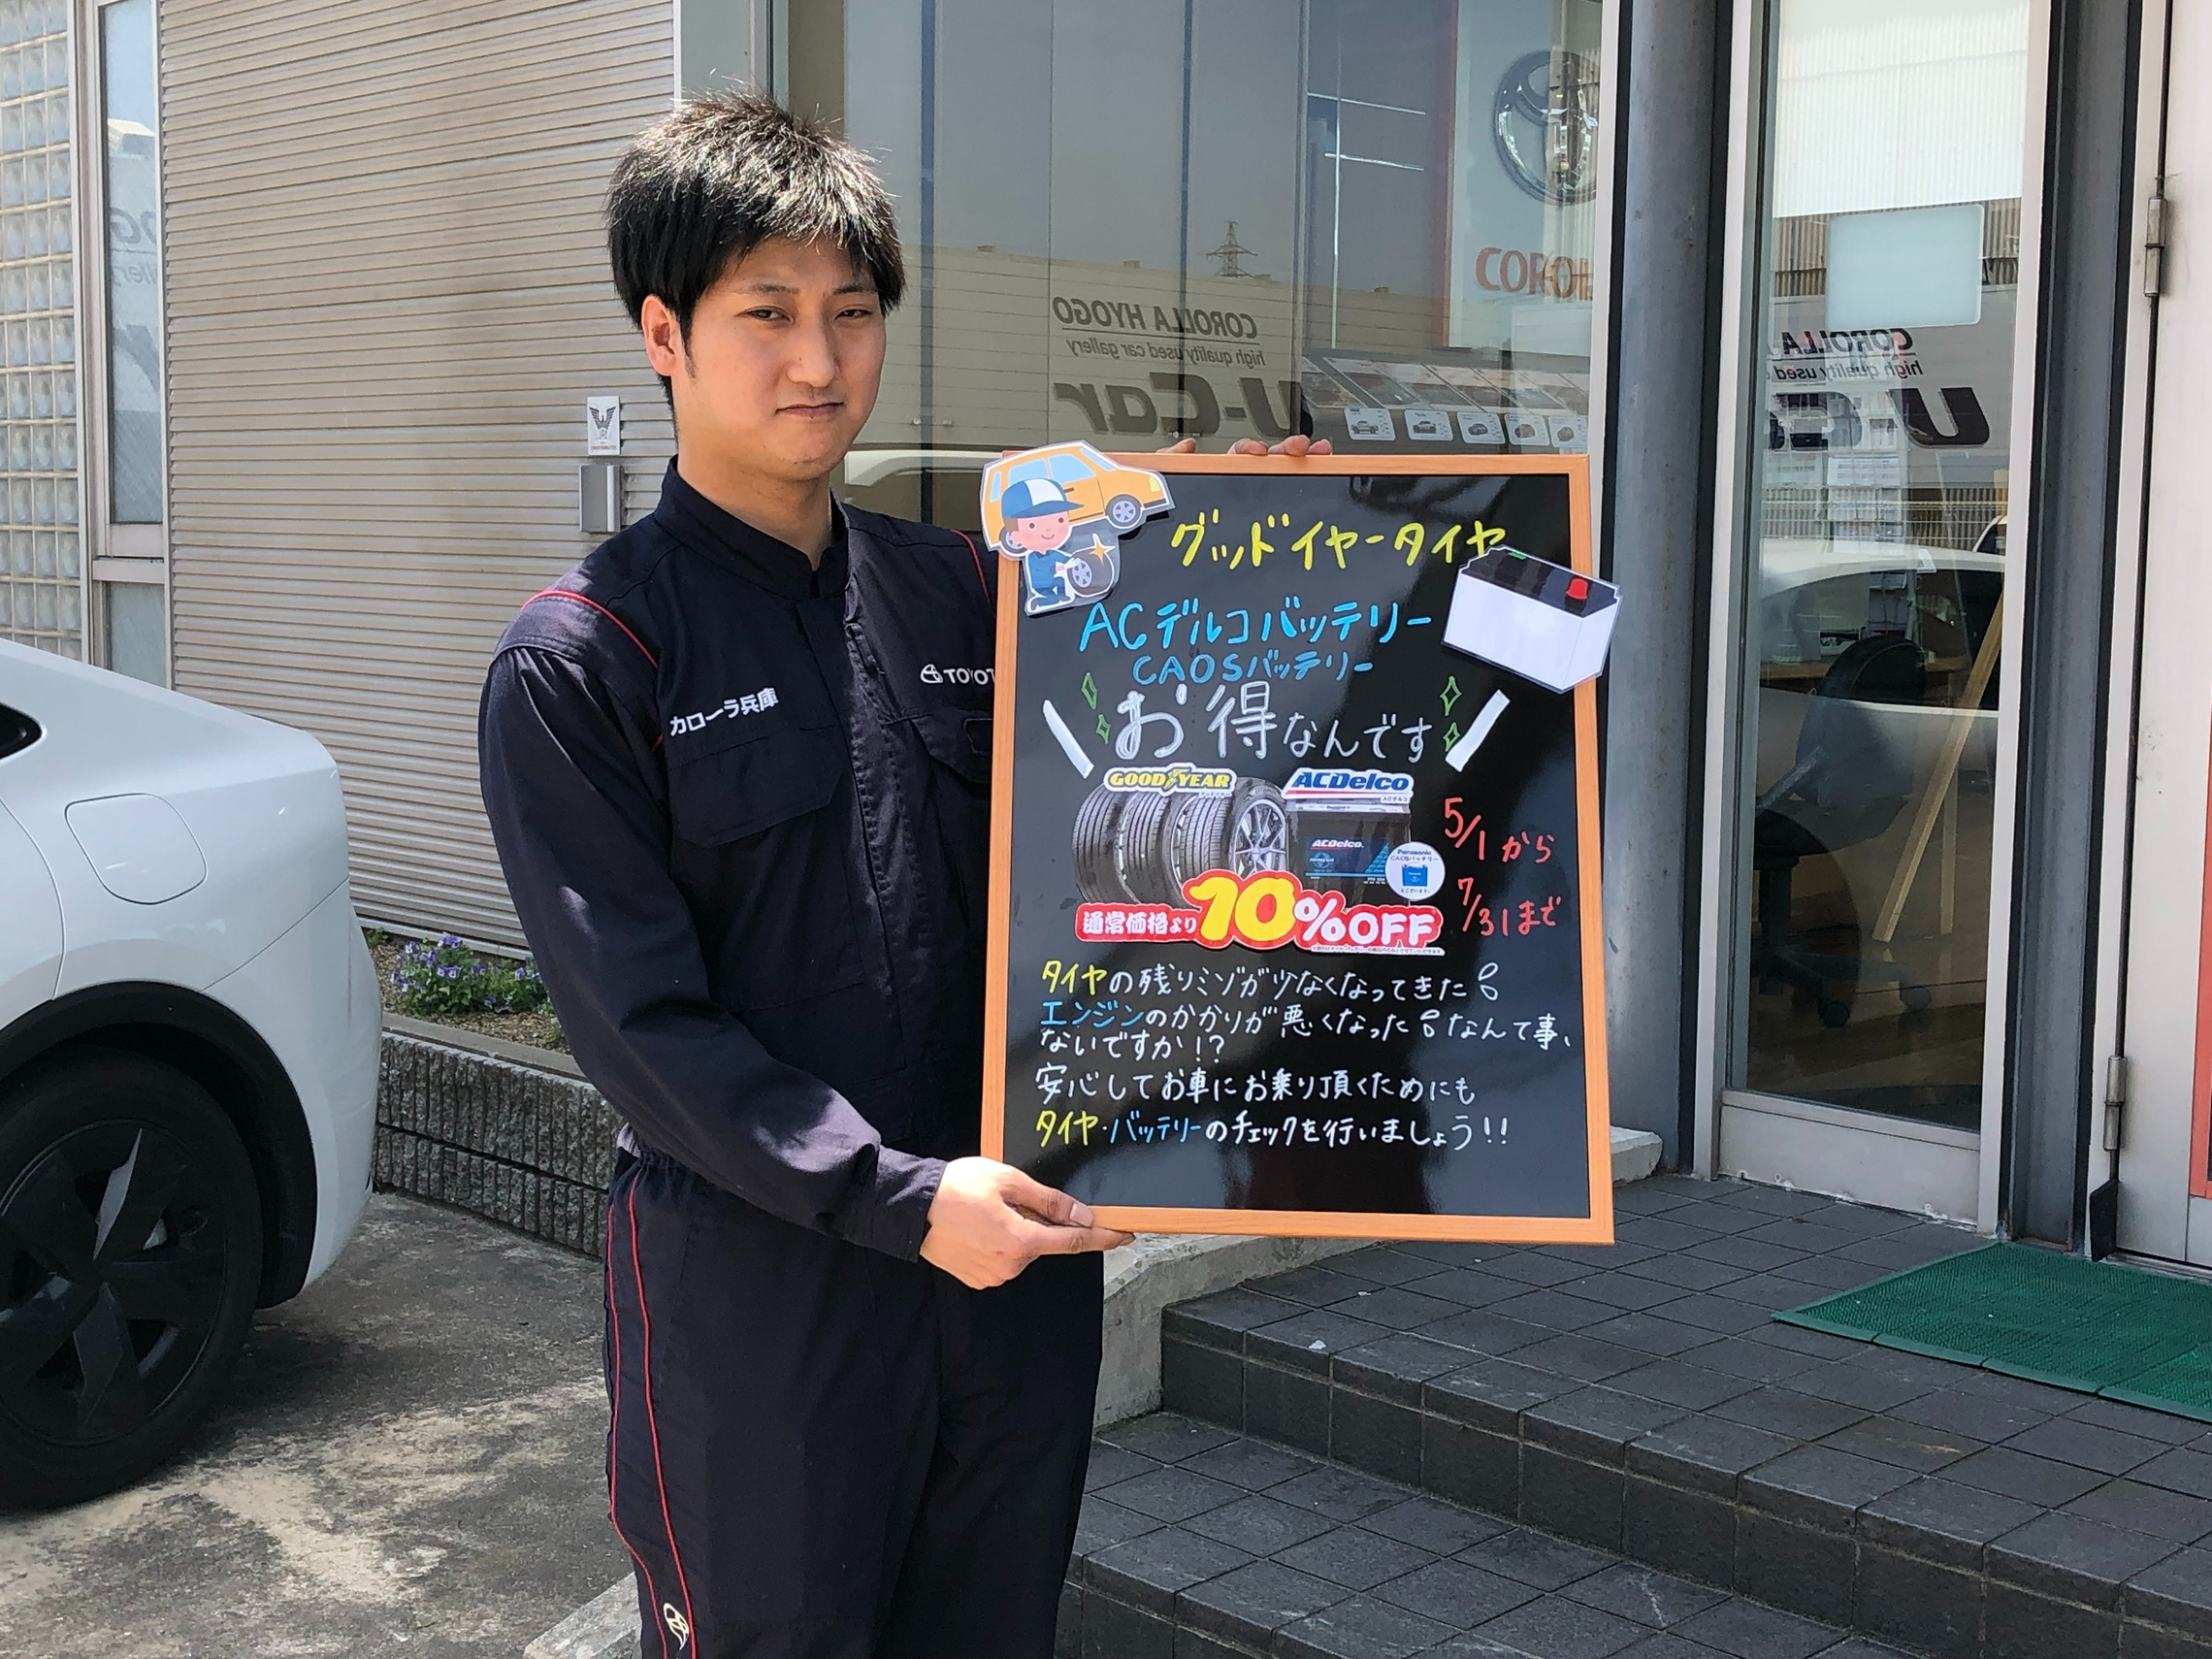 グッドイヤータイヤ
ACデルコバッテリー
CAOSバッテリー
お得なんです
GOOD YEAR
ACDelco
ACデルコ
ACDelco
Panasonic
CAOSバッテリー
5/1から
7/31まで
通常価格より10%OFF
タイヤの残りミゾが少なくなってきた
エンジンのかかりが悪くなった なんて事、
ないですか!?
安心してお車にお乗り頂くためにも
タイヤ・バッテリーのチェックを行いましょう!!
カローラ兵庫
TOYOT
COROLLA HYOGO
high quality used car gallery
U-Car
COROLLA
high quality used